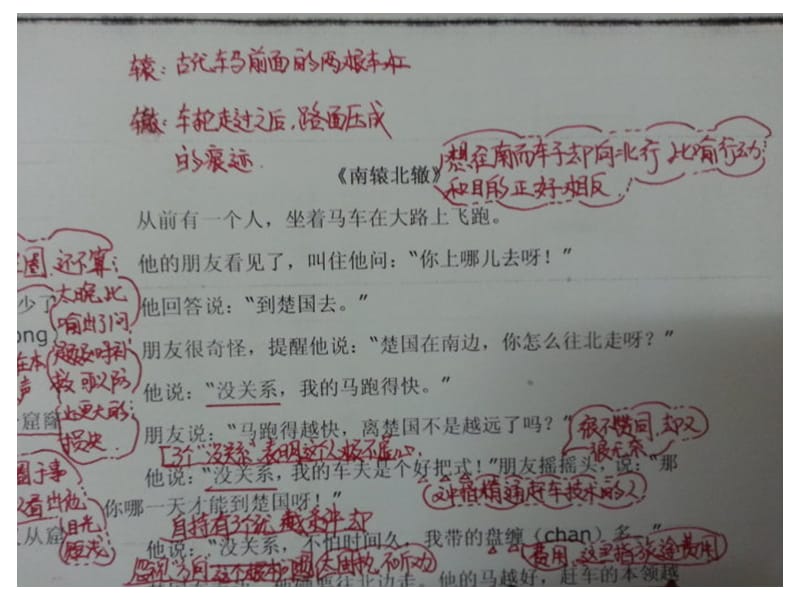 辕：古代车马前面的两根车杠
辙：车轮走过之后，路面压成
的痕迹
《南辕北辙》
想往南而车子却向北行 比喻行动
和目的正好相反
从前有一个人，坐着马车在大路上飞跑。
他的朋友看见了，叫住他问：“你上哪儿去呀！”
他回答说：“到楚国去。”
朋友很奇怪，提醒他说：“楚国在南边，你怎么往北走呀？”
他说：“没关系，我的马跑得快。”
朋友说：“马跑得越快，离楚国不是越远了吗？”
很不赞同 却又
很无奈
3个“没关系”表明这个人
他说：“没关系，我的车夫是个好把式！”朋友摇摇头，说：“那
这里指精通赶车技术的人
你哪一天才能到楚国呀！”
自持有3个优
他说：“没关系，不怕时间久，我带的盘缠（chan）多。”
费用 这里指旅途费用
太固执 不听劝
要往北边走。他的马越好，赶车的本领越
还不算
太晚 比
喻出了问
题及时
救 可以防
止更大的
损失
少了
ong
在本
声
看出他
目光
短浅
人从窟